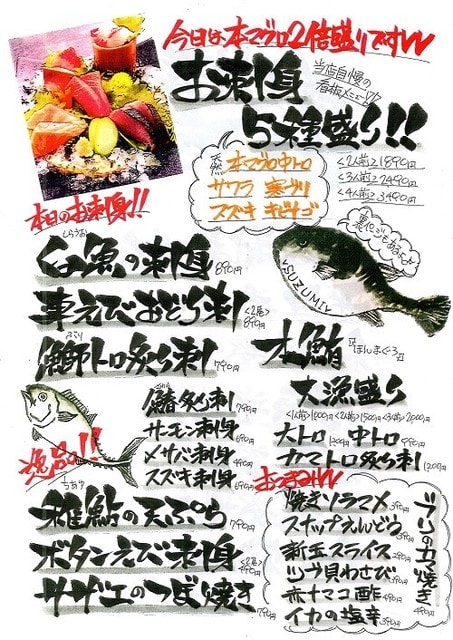 今日は本マグロ2倍盛りですVV
お刺身
当店自慢の
看板メニュー
5種盛り!!
天然
本マグロ中トロ
サワラ 寒ブリ
スズキ キビナゴ
<2人前>1890円
<3人前>2490円
<4人前>3490円
本日のお刺身!!
裏にもあるよ
SUZUMI
しらうお
白魚の刺身 890円
車えびおどり刺 <2尾> 890円
ぶり
鰤トロ炙り刺 790円
本鮪
『ほんまぐろ』
大漁盛り
<1人前>1000円 <2人前>1500円 <3人前>2000円
大トロ 1200円 中トロ 990円
カマトロ炙り刺 1200円
鰆炙り刺 790円
サーモン刺身 690円
〆サバ刺身
スズキ刺身 690円
逸品!!
ちあゆ
稚鮎の天ぷら 790円
ボタンえび刺身 <2尾>
サザエのつぼ焼き 790円
おつまみVV
焼きソラマメ 390円
スナップえんどう
新玉スライス 290円
ツブ貝わさび 390円
赤ナマコ酢 490円
イカの塩辛 390円
ブリのカマ焼き 490円